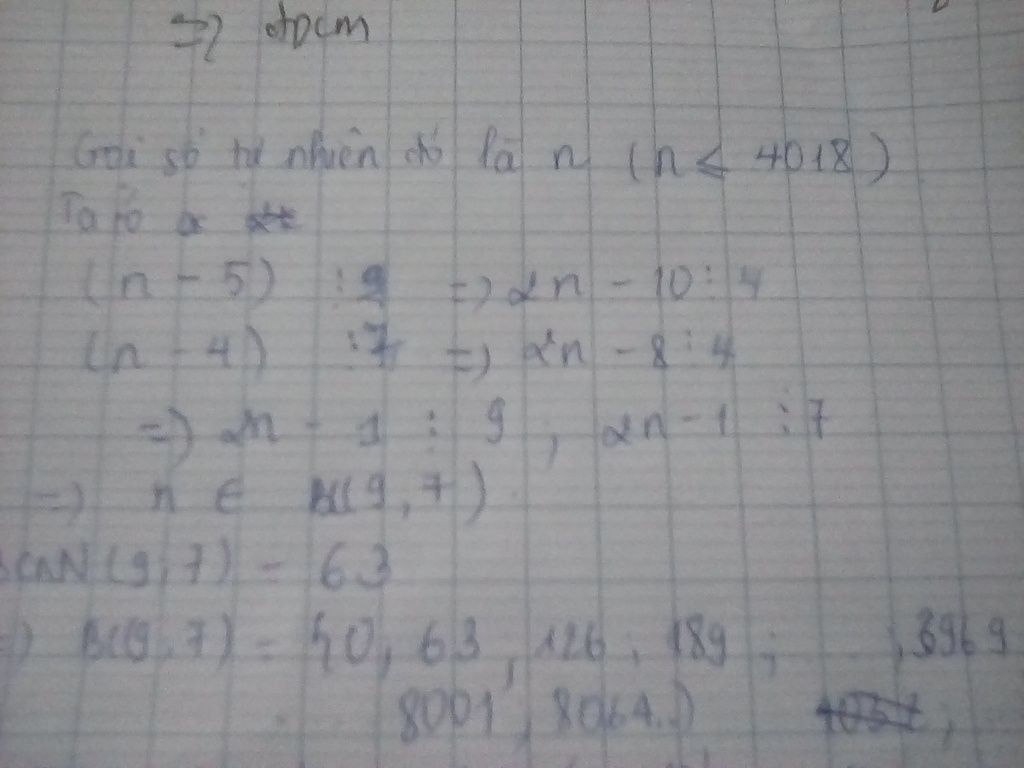 => đpcm
Gọi số tự nhiên đó là n (n < 4018)
Ta có
(n - 5) ⋮ 9 => 2n - 10 ⋮ 4
(n - 4) ⋮ 7 => 2n - 8 ⋮ 4
=> 2n - 1 ⋮ 9, 2n - 1 ⋮ 7
=> n ∈ BC(9,7)
BCNN(9,7) = 63
=> BC(9,7) = {0, 63, 126, 189; ..., 3969
8001, 8064..}